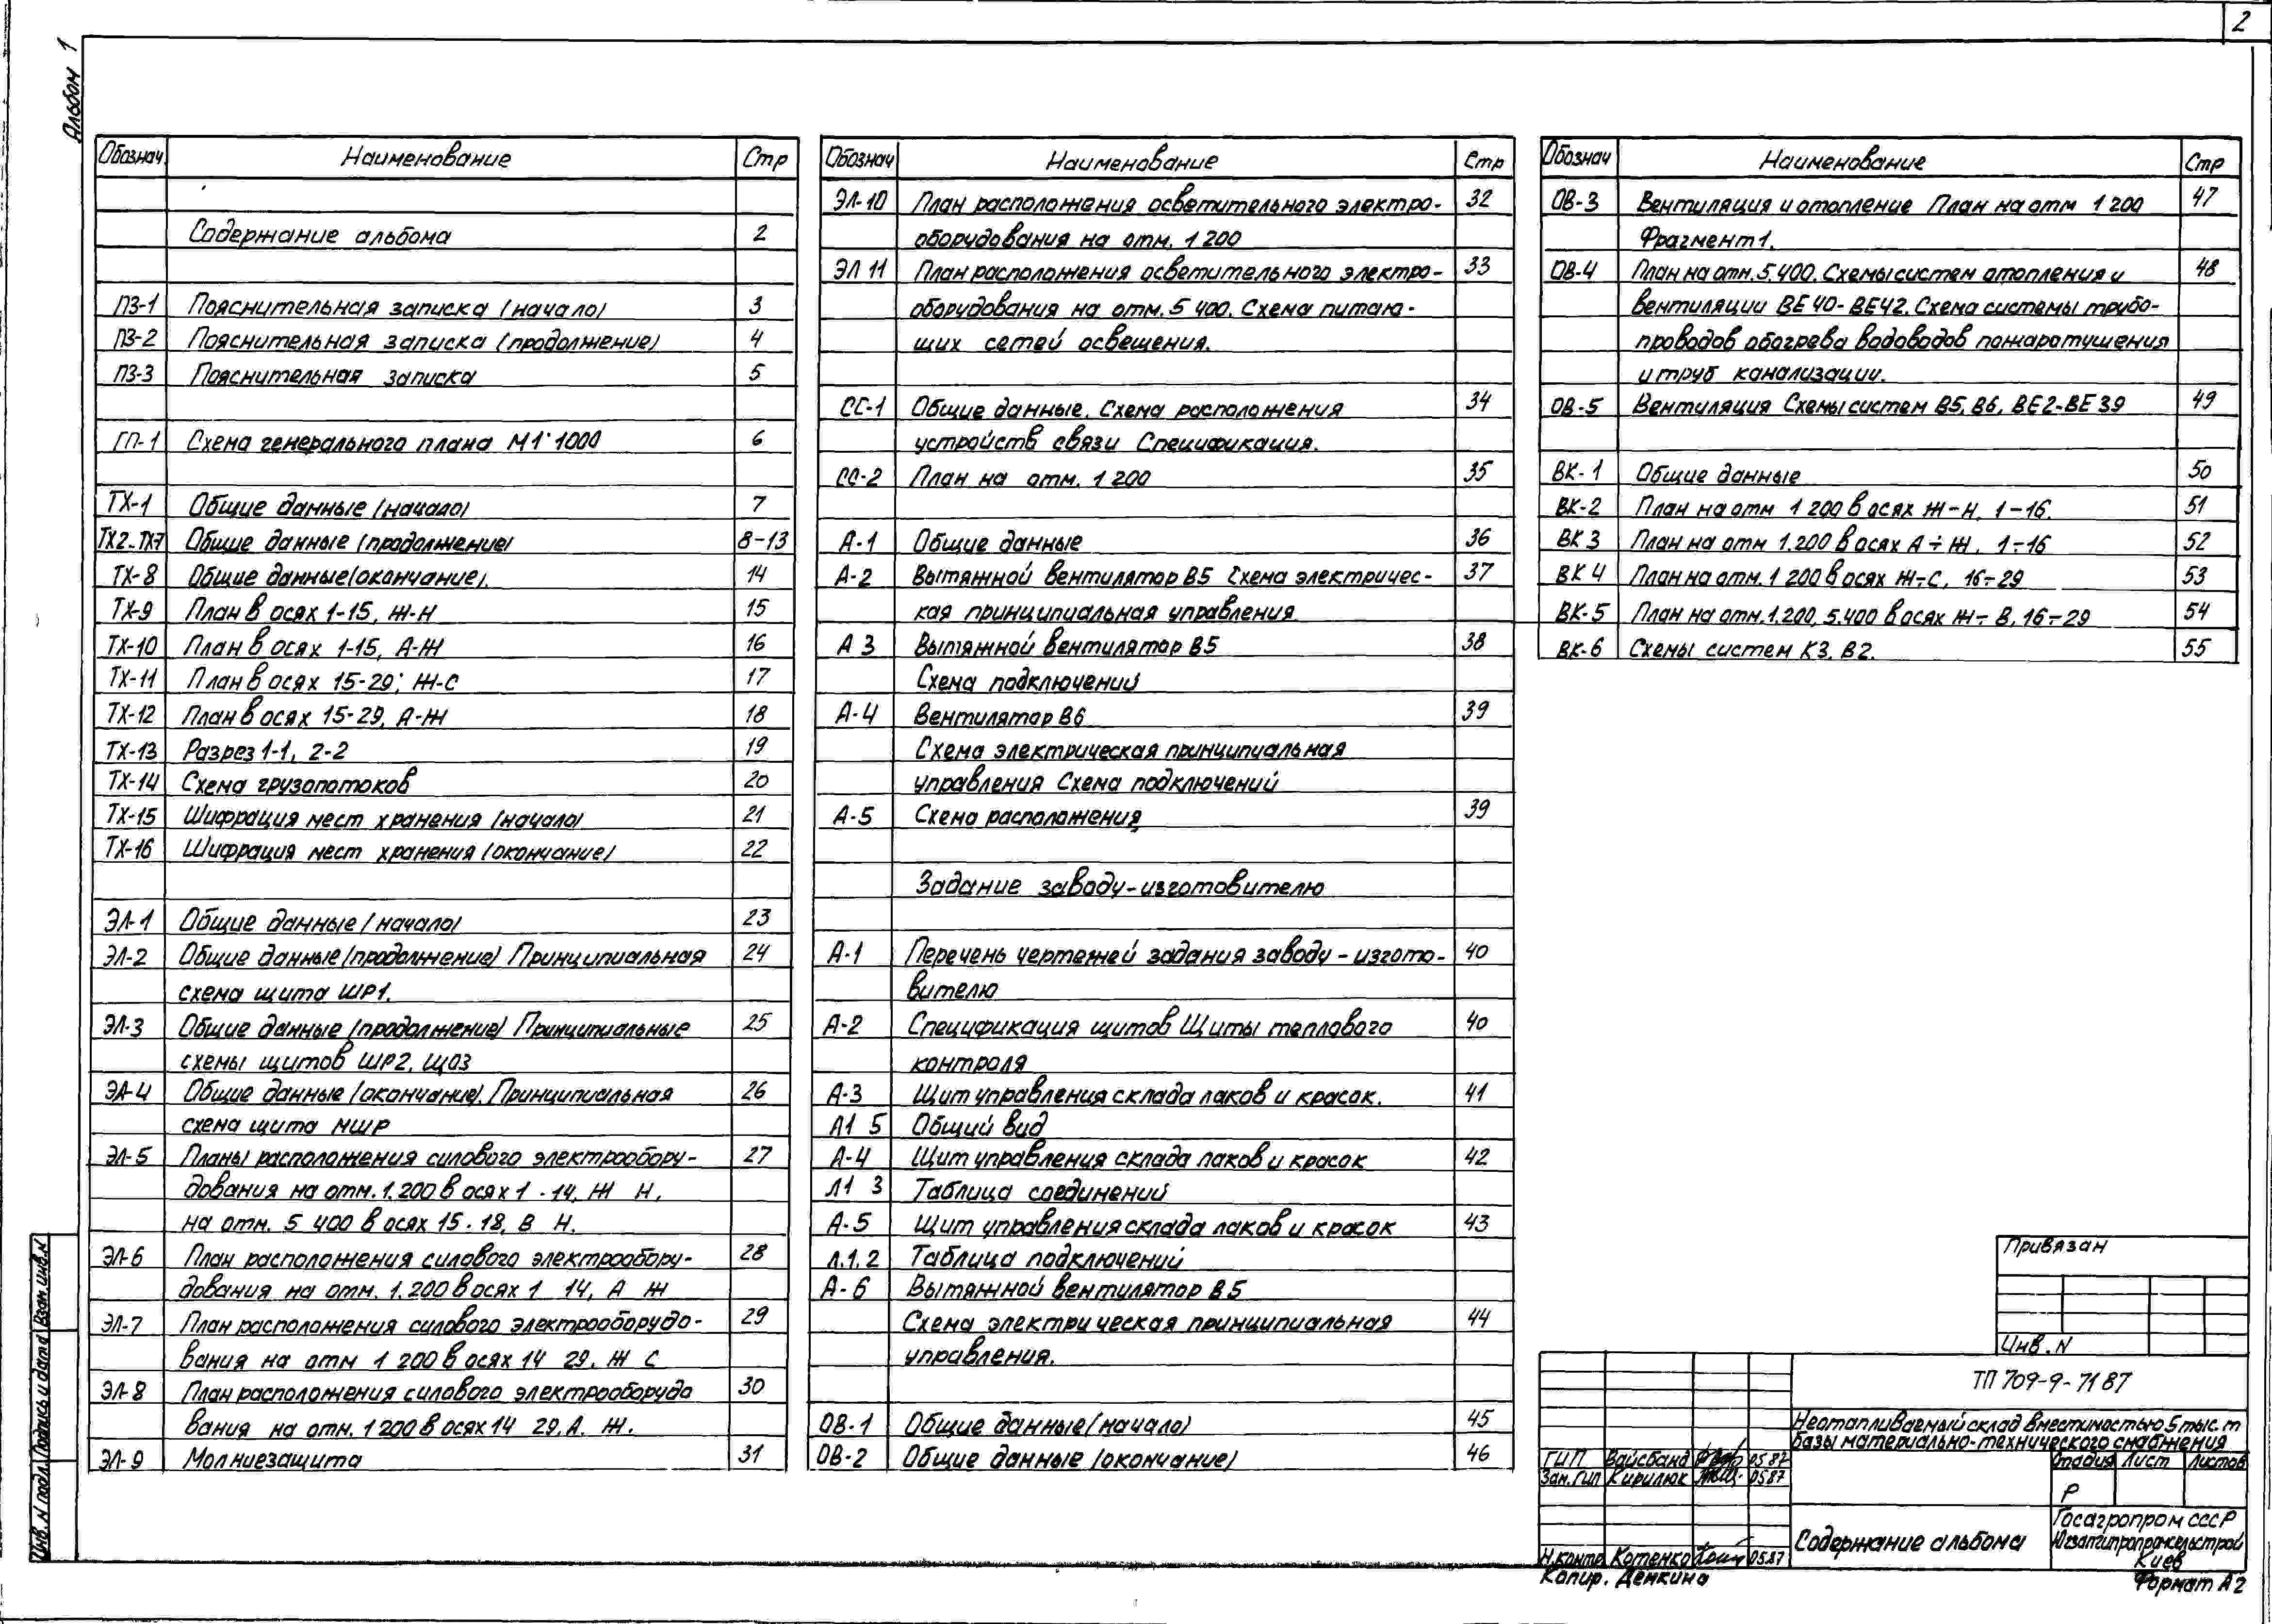 2
Альбом 1
Обознач. Наименование Стр
Содержание альбома 2
ПЗ-1 Пояснительная записка (начало) 3
ПЗ-2 Пояснительная записка (продолжение) 4
ПЗ-3 Пояснительная записка 5
ГП-1 Схема генерального плана М1:1000 6
ТХ-1 Общие данные (начало) 7
ТХ2-ТХ7 Общие данные (продолжение) 8-13
ТХ-8 Общие данные (окончание). 14
ТХ-9 План в осях 1-15, Ж-Н 15
ТХ-10 План в осях 1-15, А-Ж 16
ТХ-11 План в осях 15-29; Ж-С 17
ТХ-12 План в осях 15-29, А-Ж 18
ТХ-13 Разрез 1-1, 2-2 19
ТХ-14 Схема грузопотоков 20
ТХ-15 Шифрация мест хранения (начало) 21
ТХ-16 Шифрация мест хранения (окончание) 22
ЭЛ-1 Общие данные (начало) 23
ЭЛ-2 Общие данные (продолжение) Принципиальная 24
схема щита ШР1.
ЭЛ-3 Общие данные (продолжение) Принципиальные 25
схемы щитов ШР2, ЩОЗ
ЭЛ-4 Общие данные (окончание). Принципиальная 26
схема щита МШР
ЭЛ-5 Планы расположения силового электрообору- 27
дования на отм. 1.200 в осях 1-14, Ж Н,
на отм. 5 400 в осях 15-18, В Н.
ЭЛ-6 План расположения силового электрообору- 28
дования на отм. 1.200 в осях 1 14, А Ж
ЭЛ-7 План расположения силового электрооборудо- 29
вания на отм 1 200 в осях 14 29, Ж С
ЭЛ-8 План расположения силового электрооборудо 30
вания на отм. 1 200 в осях 14 29, А. Ж.
ЭЛ-9 Молниезащита 31
Обознач Наименование Стр
ЭЛ-10 План расположения осветительного электро- 32
оборудования на отм. 1 200
ЭЛ 11 План расположения осветительного электро- 33
оборудования на отм. 5 400. Схема питаю-
щих сетей освещения.
СС-1 Общие данные. Схема расположения 34
устройств связи Спецификация.
СС-2 План на отм. 1 200 35
А-1 Общие данные 36
А-2 Вытяжной вентилятор В5 Схема электричес- 37
кая принципиальная управления
А 3 Вытяжной вентилятор В5 38
Схема подключений
А-4 Вентилятор В6 39
Схема электрическая принципиальная
управления Схема подключений
А-5 Схема расположения 39
Задание заводу-изготовителю
А-1 Перечень чертежей задания заводу-изгото- 40
вителю
А-2 Спецификация щитов Щиты теплового 40
контроля
А-3 Щит управления склада лаков и красок. 41
Л1 5 Общий вид
А-4 Щит управления склада лаков и красок 42
Л1 3 Таблица соединений
А-5 Щит управления склада лаков и красок 43
Л.1.2 Таблица подключений
А-6 Вытяжной вентилятор В5
Схема электрическая принципиальная 44
управления.
ОВ-1 Общие данные (начало) 45
ОВ-2 Общие данные (окончание) 46
Обознач Наименование Стр
ОВ-3 Вентиляция и отопление План на отм 1 200 47
Фрагмент 1.
ОВ-4 План на отм. 5.400. Схемы систем отопления и 48
вентиляции ВЕ40-ВЕ42. Схема системы трубо-
проводов обогрева водоводов пожаротушения
и труб канализации.
ОВ-5 Вентиляция Схемы систем В5, В6, ВЕ2-ВЕ39 49
ВК-1 Общие данные 50
ВК-2 План на отм 1 200 в осях Ж-Н, 1-16. 51
ВК 3 План на отм 1.200 в осях А÷Ж, 1÷16 52
ВК 4 План на отм. 1 200 в осях Ж÷С, 16÷29 53
ВК-5 План на отм. 1.200, 5.400 в осях Ж÷В, 16÷29 54
ВК-6 Схемы систем К3, В2. 55
Привязан
Инв. N
ТП 709-9-71 87
Неотапливаемый склад вместимостью 5 тыс. т
базы материально-технического снабжения
ГИП Вайсбанд 05 87
Зам. ГИП Кирилюк 05 87
Стадия Лист Листов
Р
Содержание альбома
Госагропром СССР
Югзапгипропромсельстрой
Киев
Н.контр Котенко 05.87
Копир. Демкина
Формат А2
Инв. N подл. Подпись и дата Взам. инв. N